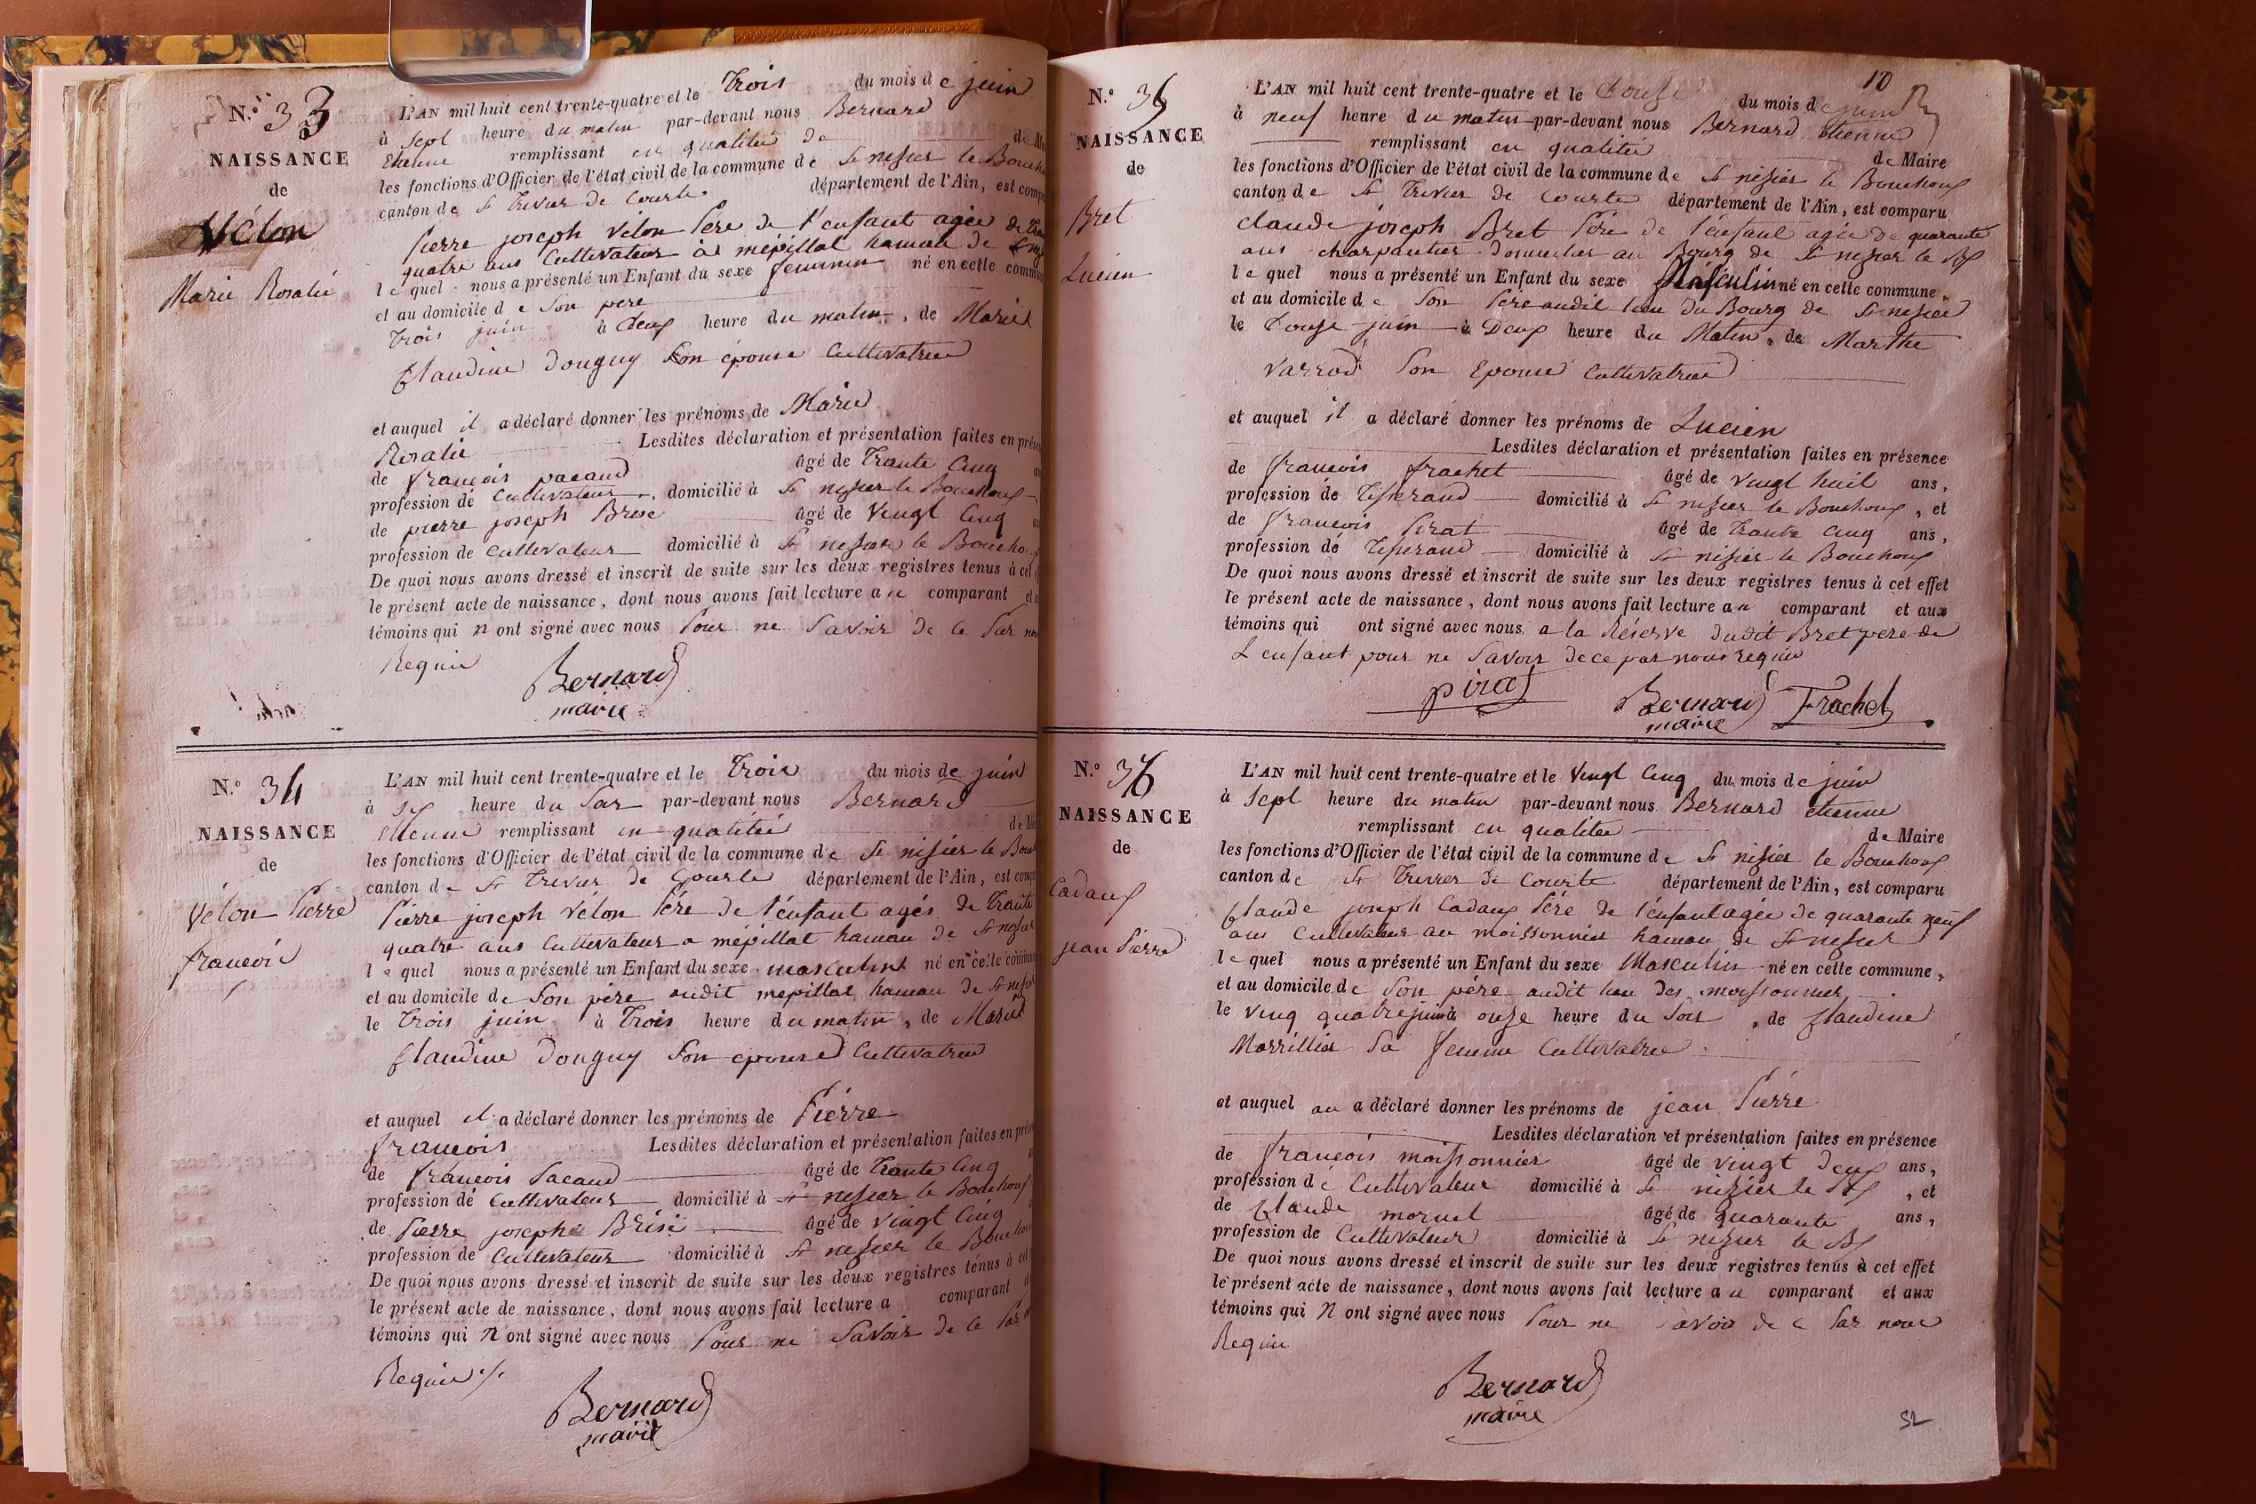 N.º 33
NAISSANCE
de
Vélon
Marie Rosalie
L'AN mil huit cent trente-quatre et le Trois du mois de juin
à Sept heure du matin par-devant nous Bernard
Etienne remplissant en qualitée de
les fonctions d'Officier de l'état civil de la commune de St nisier le Bouch
canton de St Trivier de Courte département de l'Ain, est comp
Pierre joseph Vélon Père de l'enfant agée de
quatre ans Cultivateur à mépillat hameau de
le quel nous a présenté un Enfant du sexe feminin né en cette comm
et au domicile de Son pere
Trois juin à Deux heure du matin, de Marie
Claudine Donguy Son épouse Cultivatrice
et auquel il a déclaré donner les prénoms de Marie
Rosalie Lesdites déclaration et présentation faites en prés
de françois pacaud âgé de Trante Cinq
profession de Cultivateur domicilié à St nisier le Bouchoux
de pierre joseph Brise âgé de Vingt Cinq
profession de Cultivateur domicilié à St nisier le Boucho
De quoi nous avons dressé et inscrit de suite sur les deux registres tenus à cet
le présent acte de naissance, dont nous avons fait lecture au comparant et
témoins qui n ont signé avec nous Pour ne Savoir de ce Par
Requie
Bernard
maire
N.º 34
NAISSANCE
de
Vélon Pierre
françois
L'AN mil huit cent trente-quatre et le Trois du mois de juin
à Six heure du Soir par-devant nous Bernard
Etienne remplissant en qualitée
les fonctions d'Officier de l'état civil de la commune de St nisier le Bouch
canton de St Trivier de Courte département de l'Ain, est comp
Pierre joseph Vélon Père de l'enfant agés de Trante
quatre ans Cultivateur a mépillat hameau de St nisier
le quel nous a présenté un Enfant du sexe masculin né en cette commun
et au domicile de Son père audit mepillat hameau de St nisier
le Trois juin à Trois heure du matin, de Marie
Claudine Donguy Son epouse Cultivatrice
et auquel il a déclaré donner les prénoms de Pierre
françois Lesdites déclaration et présentation faites en pré
de françois Pacaud âgé de Trante Cinq
profession de Cultivateur domicilié à St nisier le Bouchoux
de Pierre joseph Brise âgé de Vingt Cinq
profession de Cultivateur domicilié à St nisier le Bouchou
De quoi nous avons dressé et inscrit de suite sur les deux registres tenus à cet
le présent acte de naissance, dont nous avons fait lecture a comparant
témoins qui n ont signé avec nous Pour ne Savoir de ce Par
Requie
Bernard
maire
10
N.º 35
NAISSANCE
de
Bret
Lucien
L'AN mil huit cent trente-quatre et le Douze du mois de juin
à neuf heure du matin par-devant nous Bernard Etienne
remplissant en qualitée de Maire
les fonctions d'Officier de l'état civil de la commune de St nisier le Bouchoux
canton de St Trivier de Courte département de l'Ain, est comparu
Claude joseph Bret Père de l'enfant agée de quarante
ans charpantier domicilier au Bourg de St nisier le Bx
le quel nous a présenté un Enfant du sexe Masculin né en cette commune,
et au domicile de Son Père audit lieu du Bourg de St nisier
le Douze juin à Deux heure du Matin, de Marthe
Varrod Son Epouse Cultivatrice
et auquel il a déclaré donner les prénoms de Lucien
Lesdites déclaration et présentation faites en présence
de françois frachet âgé de vingt huit ans,
profession de Tisserand domicilié à St nisier le Bouchoux, et
de françois Pirat âgé de Trante Cinq ans,
profession de Tisserand domicilié à St nisier le Bouchoux
De quoi nous avons dressé et inscrit de suite sur les deux registres tenus à cet effet
le présent acte de naissance, dont nous avons fait lecture au comparant et aux
témoins qui ont signé avec nous a la Réserve dudit Bret pere de
L'enfant pour ne Savoir de ce par nous requie
pirat Bernard Frachet
maire
N.º 36
NAISSANCE
de
Cadaux
jean Pierre
L'AN mil huit cent trente-quatre et le Vingt Cinq du mois de juin
à Sept heure du matin par-devant nous Bernard etienne
remplissant en qualitée de Maire
les fonctions d'Officier de l'état civil de la commune de St nisier le Bouchoux
canton de St Trivier de Courte département de l'Ain, est comparu
Claude joseph Cadaux Père de l'enfant agée de quarante neuf
ans Cultivateur au moissonnier hameau de St nisier
le quel nous a présenté un Enfant du sexe Masculin né en cette commune,
et au domicile de Son pére audit lieu des moissonnier
le vinq quatre juin à onze heure du Soir, de Claudine
Marrillier Sa femme Cultivatrice
et auquel au a déclaré donner les prénoms de jean Pierre
Lesdites déclaration et présentation faites en présence
de françois moissonnier âgé de vingt deux ans,
profession de Cultivateur domicilié à St nizier le Bx, et
de Claude moruel âgé de quarante ans,
profession de Cultivateur domicilié à St nizier le Bx
De quoi nous avons dressé et inscrit de suite sur les deux registres tenus à cet effet
le présent acte de naissance, dont nous avons fait lecture au comparant et aux
témoins qui n ont signé avec nous Pour ne Savoir de ce Par nous
Requie
Bernard
maire